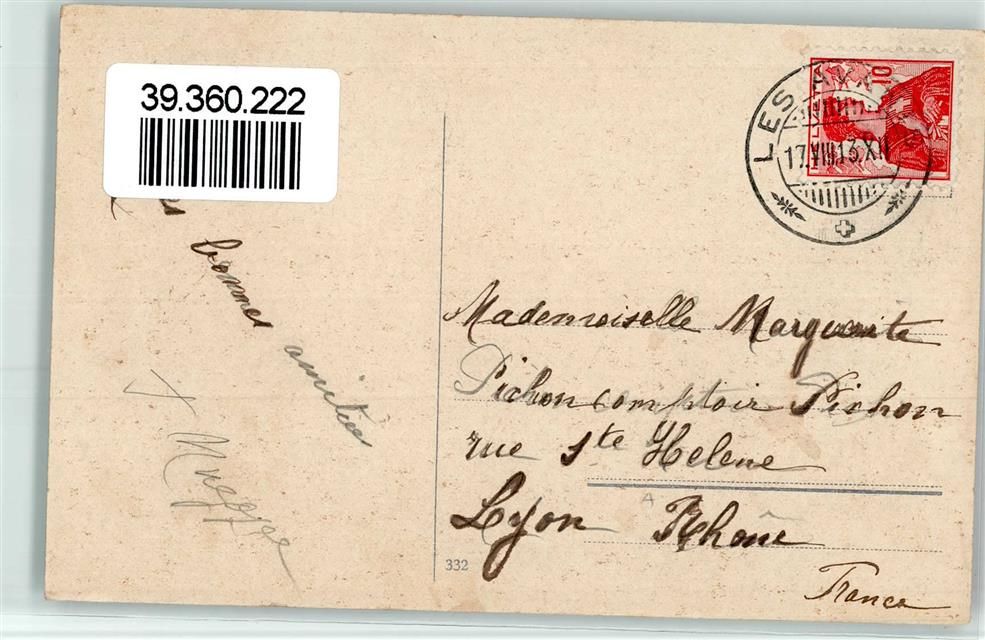 39.360.222
10
LES AVA
17.VIII.13.XII
bonnes
amitiés
Mademoiselle Marguerite
Pichon comptoir Pichon
rue Ste Helene
Lyon Rhône
France
332